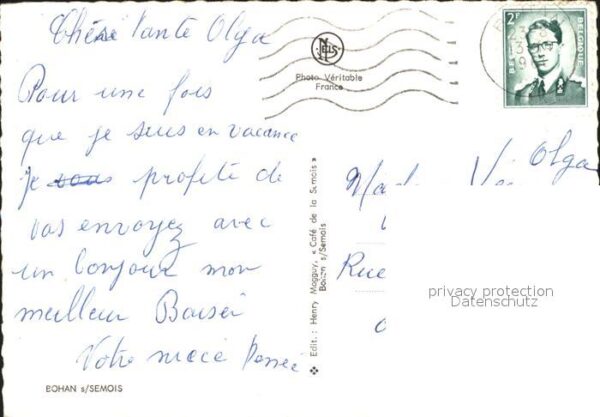 Chère Tante Olga
Pour une fois
que je suis en vacance
Je profite de
vas envoyez avec
un bonjour mon
meilleur Baiser
Votre niece
BOHAN s/SEMOIS
NELS
Photo Véritable
France
Edit.: Henry Magguy, « Café de la Semois »
Bohan s/Semois
2F
BELGIQUE
BELGIE
Olga
Rue
privacy protection
Datenschutz